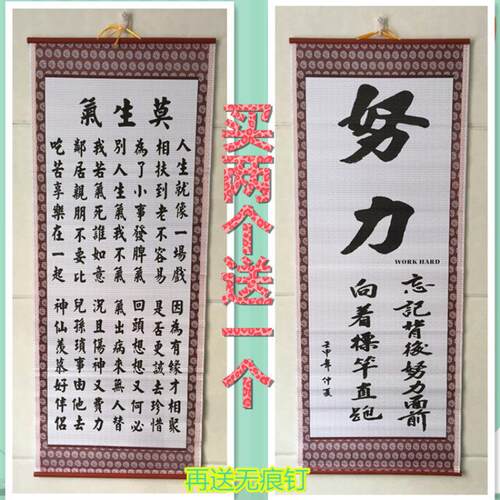 莫生氣
人生就像一場戲
因為有緣才相聚
相扶到老不容易
是否更該去珍惜
為了小事發脾氣
回頭想想又何必
別人生氣我不氣
氣出病來無人替
我若氣死誰如意
況且傷神又費力
鄰居親朋不要比
兒孫瑣事由他去
吃苦享樂在一起
神仙羨慕好伴侶
买两个送一个
努力
WORK HARD
忘記背後努力面前
向着標竿直跑
壬申年仲夏
再送无痕钉